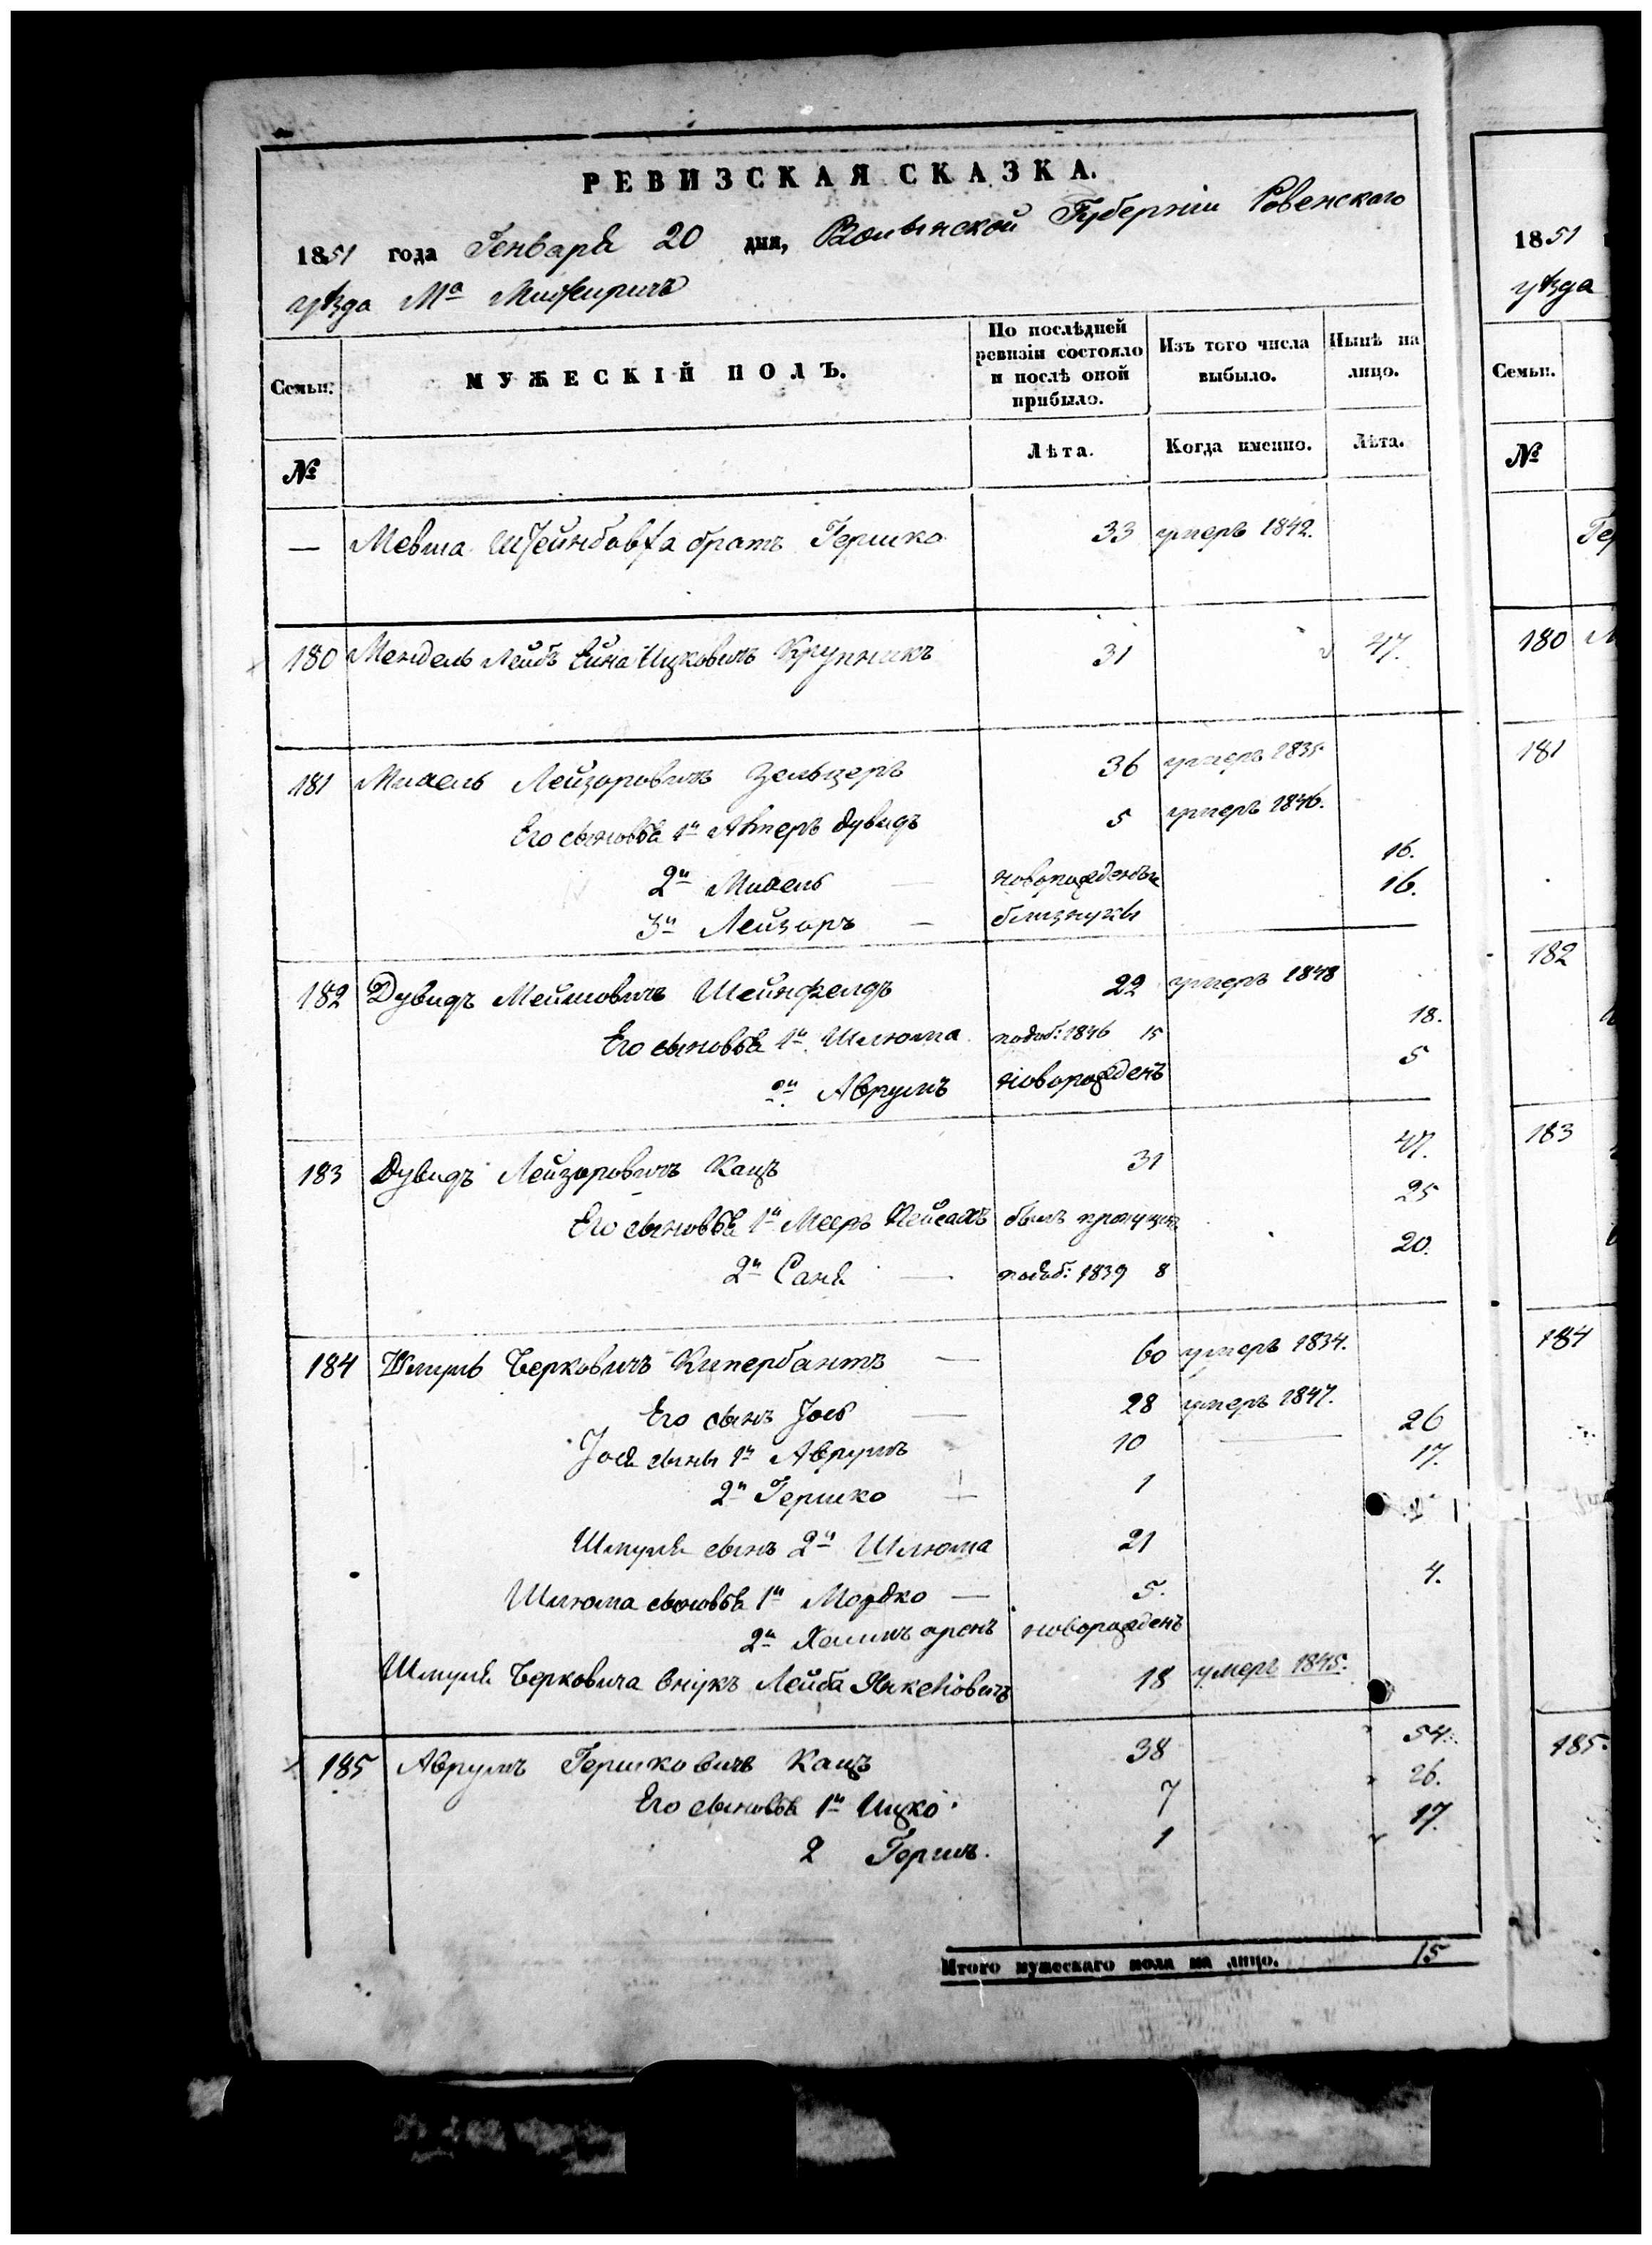 РЕВИЗСКАЯ СКАЗКА.
1851 года Генваря 20 дня, Волынской Губернiи Ровенского
уѣзда Мa Межирича
Семьи. МУЖЕСКIЙ ПОЛЪ. По послѣдней ревизiи состояло и послѣ оной прибыло. Изъ того числа выбыло. Нынѣ на лицо.
№ Лѣта. Когда именно. Лѣта.
— Мевша брать Гершко 33 умеръ 1842.
180 Мендель Лейбъ Ицковичъ Крупникъ 31 47.
181 Михель Лейзоровичъ Зельцеръ 36 умеръ 1835.
Его сыновья 1й Авнеръ Дувидъ 5 умеръ 1846.
2й Михель — новорожденные 16.
3й Лейзоръ — близнуки 16.
182 Дувидъ Мейшовичъ Шейнфелдъ 22 умеръ 1848
Его сыновья 1й Шлюома подоб: 1846 15 18.
2й Аврумъ новорожденъ 5
183 Дувидъ Лейзоровичъ Кацъ 31 47.
Его сыновья 1й Мееръ Пейсахъ былъ 25
2й Саня — подоб: 1839 8 20.
184 Шмуль Берковичъ Кипербантъ — 60 умеръ 1834.
Его сынъ Jось — 28 умеръ 1847.
Jося сыны 1й Аврумъ 10 — 26
2й Гершко 1 17.
Шмуля сынъ 2й Шлюома 21
Шлюома сыновья 1й Мордко — 5.
2й Хаимъ аронъ новорожденъ 4.
Шмуля Берковича внукъ Лейба Янкелiовичъ 18 умеръ 1845.
185 Аврумъ Гершковичъ Кацъ 38 54.
Его сыновья 1й Ицко 7 26.
2 Гершъ. 1 17.
Итого мужескаго пола на лицо. 15
1851
уѣзда
Семьи.
№
180
181
182
183
184
185.